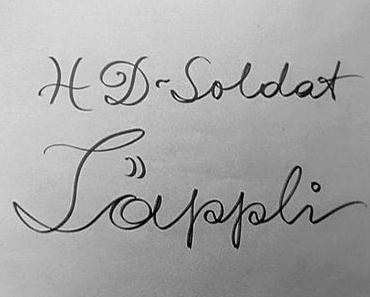 HD-Soldat
Läppli